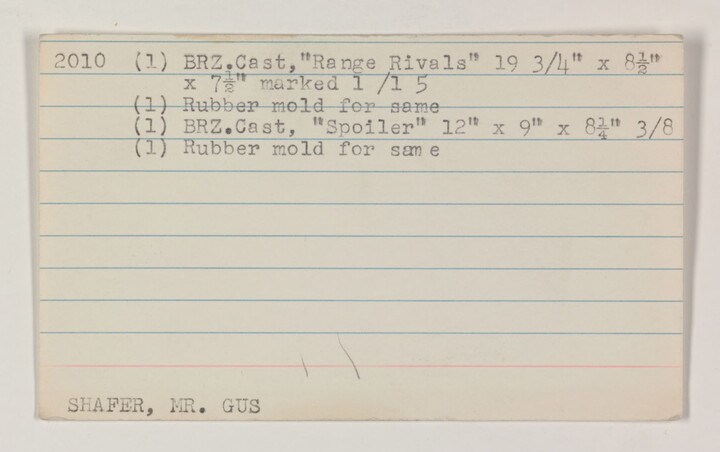 2010 (1) BRZ.Cast,"Range Rivals" 19 3/4" x 8½"
x 7½" marked 1 /1 5
(1) Rubber mold for same
(1) BRZ.Cast, "Spoiler" 12" x 9" x 8¼" 3/8
(1) Rubber mold for same
SHAFER, MR. GUS